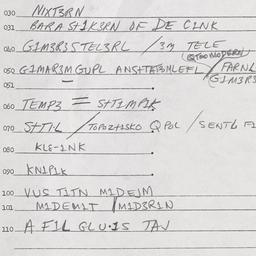 030 NIXT3RN
031 BARA St1K3RN OF DE CINK
040 G1M3R3STEL3RL / 3M TELE
(QTOOMODERN)
050 G1MAR3M GUPL ANSHTET3MLEFL / FARNL
051 (G1M3R3
060 TEMP3 = SHTIMP1K
070 SHTIL / TOPOZHISKO Q POL / SENTL FI
080 KLE-INK
090 KNIP1K
100 VUS TITN MIDEIM
101 MIDEMIT / MID3RIN
110 A FIL GLU·IS TAJ